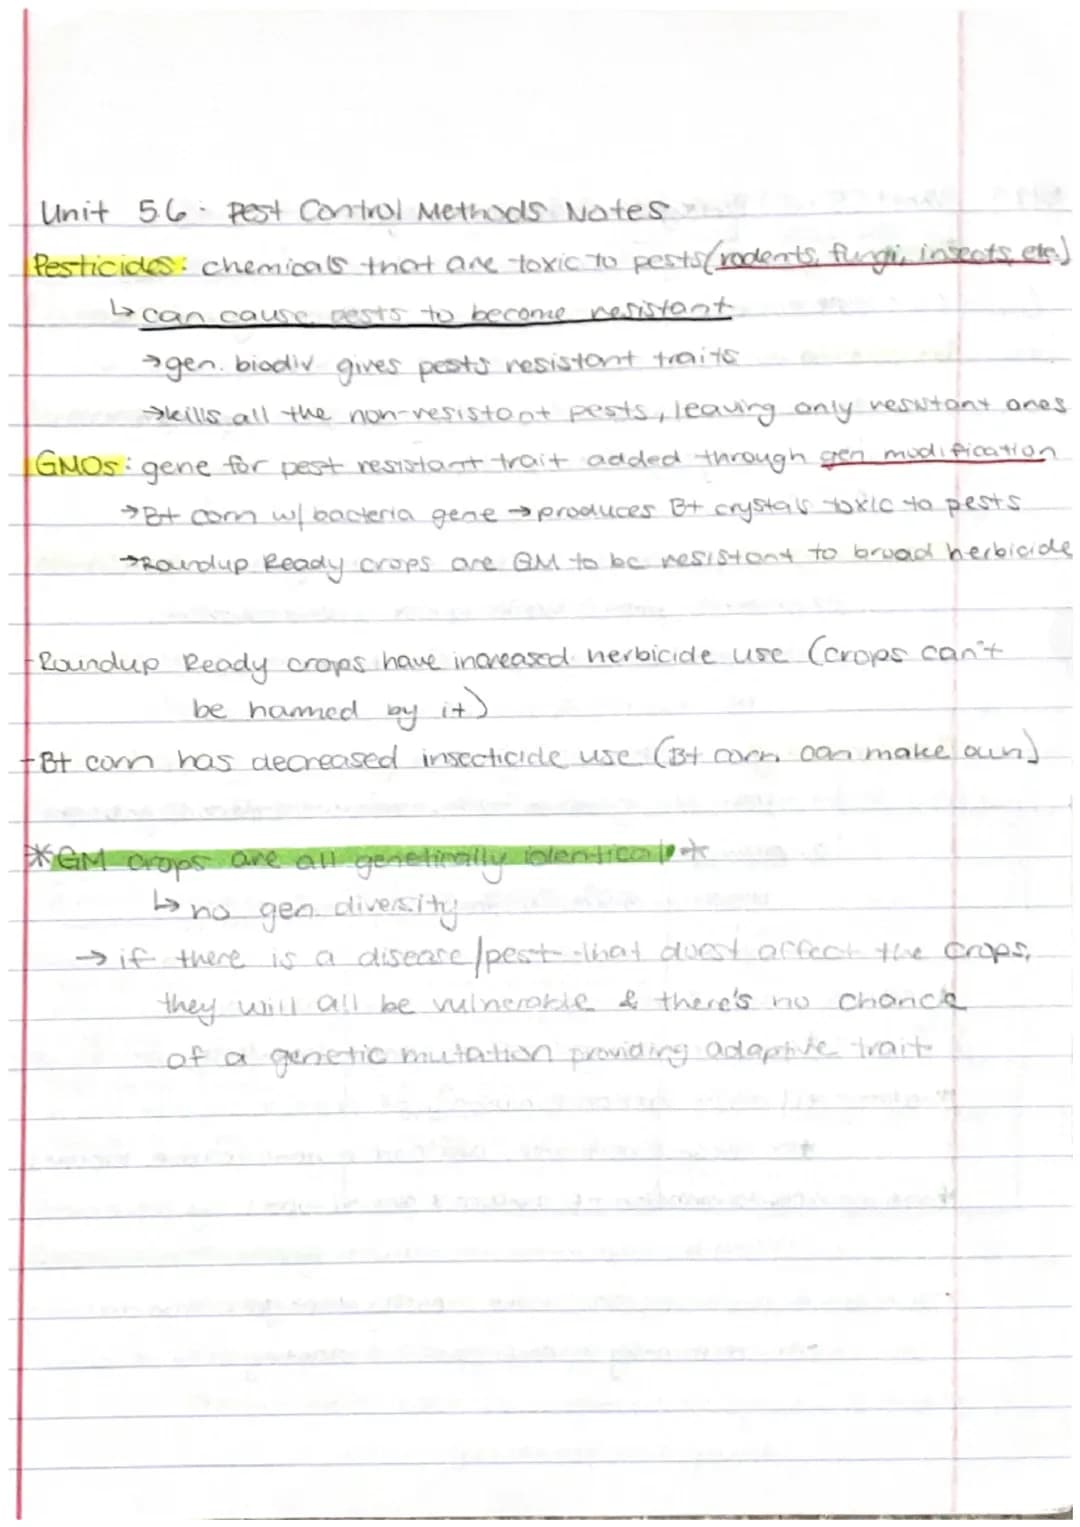 Unit 5.6: Pest Control Methods Notes
Pesticides: chemicals that are toxic to pests (rodents, fungi, insects, etc.)
↳ can cause pests to become resistant
→ gen. biodiv gives pests resistant traits
→ kills all the non-resistant pests, leaving only resistant ones
GMOs: gene for pest resistant trait added through gen modification
→ Bt corn w/ bacteria gene → produces Bt crystals toxic to pests
→ Roundup Ready crops are GM to be resistant to broad herbicide
- Roundup Ready crops have increased herbicide use (crops can't
be harmed by it)
- Bt corn has decreased insecticide use (Bt corn can make own)
* GM crops are all genetically identical *
↳ no gen. diversity
→ if there is a disease/pest that does affect the crops,
they will all be vulnerable & there's no chance
of a genetic mutation providing adaptive trait